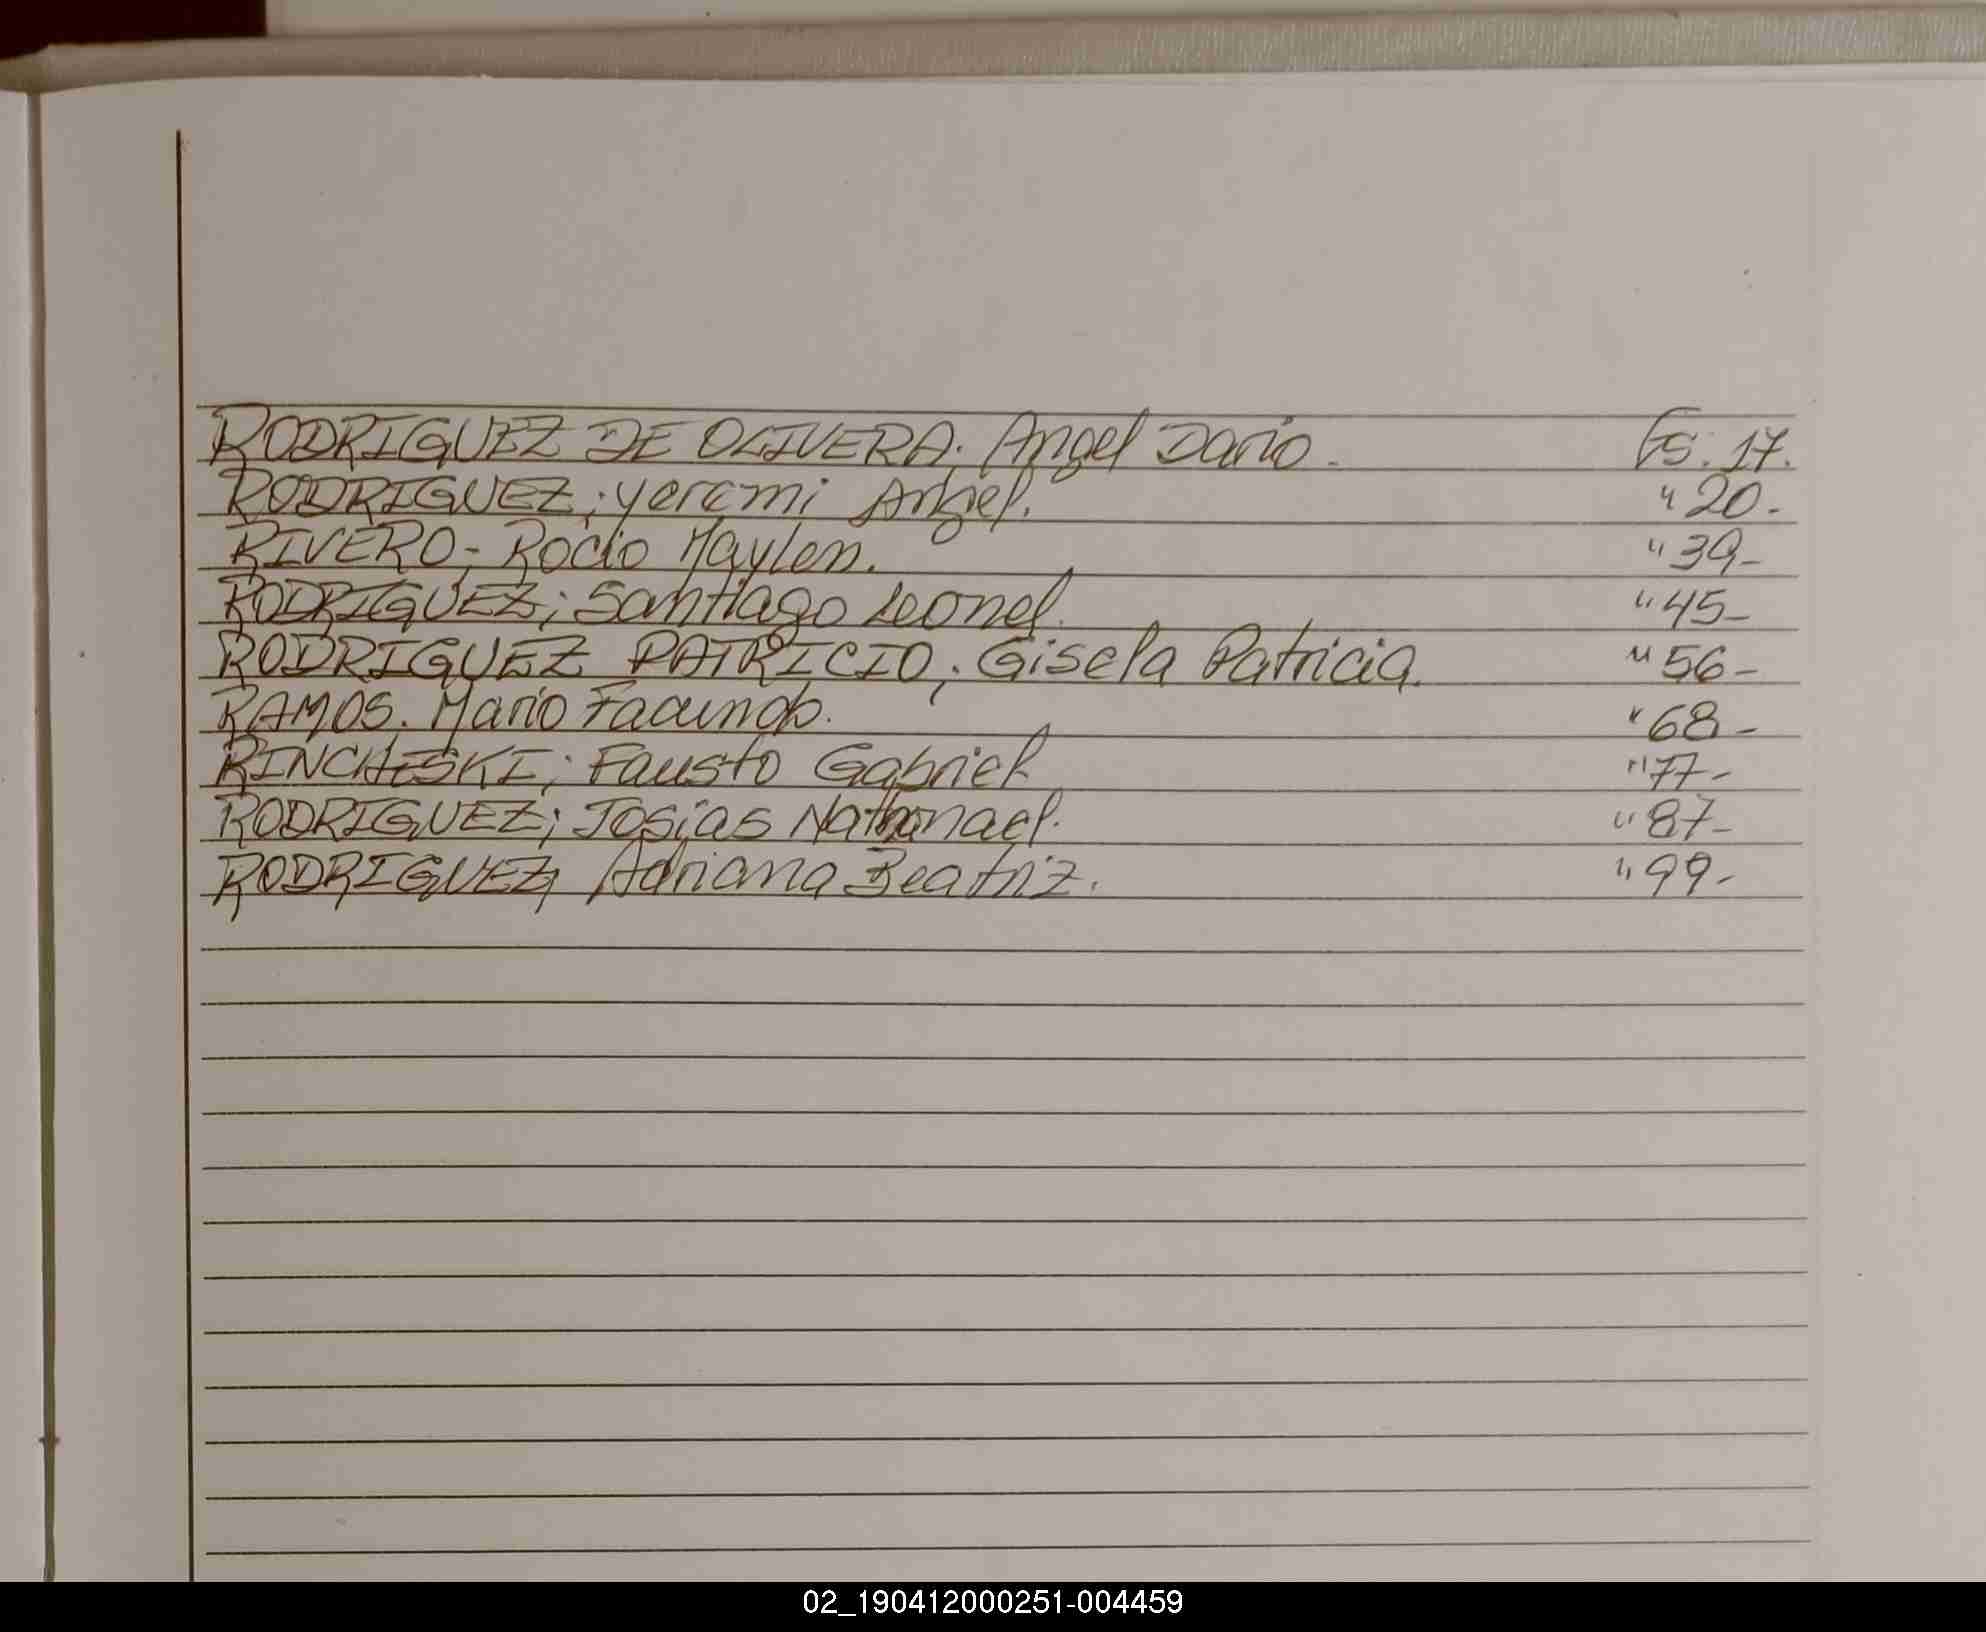 RODRIGUEZ DE OLIVERA. Angel Dario. Fs. 17.
RODRIGUEZ; Yeremi Angel. " 20-
RIVERO- Rocio Maylen. " 39-
RODRIGUEZ; Santiago Leonel. " 45-
RODRIGUEZ PATRICIO; Gisela Patricia. " 56-
RAMOS. Mario Facundo. " 68-
RINCHESKI; Fausto Gabriel " 77-
RODRIGUEZ; Josias Nathanael. " 87-
RODRIGUEZ; Adriana Beatriz. " 99-
02_190412000251-004459